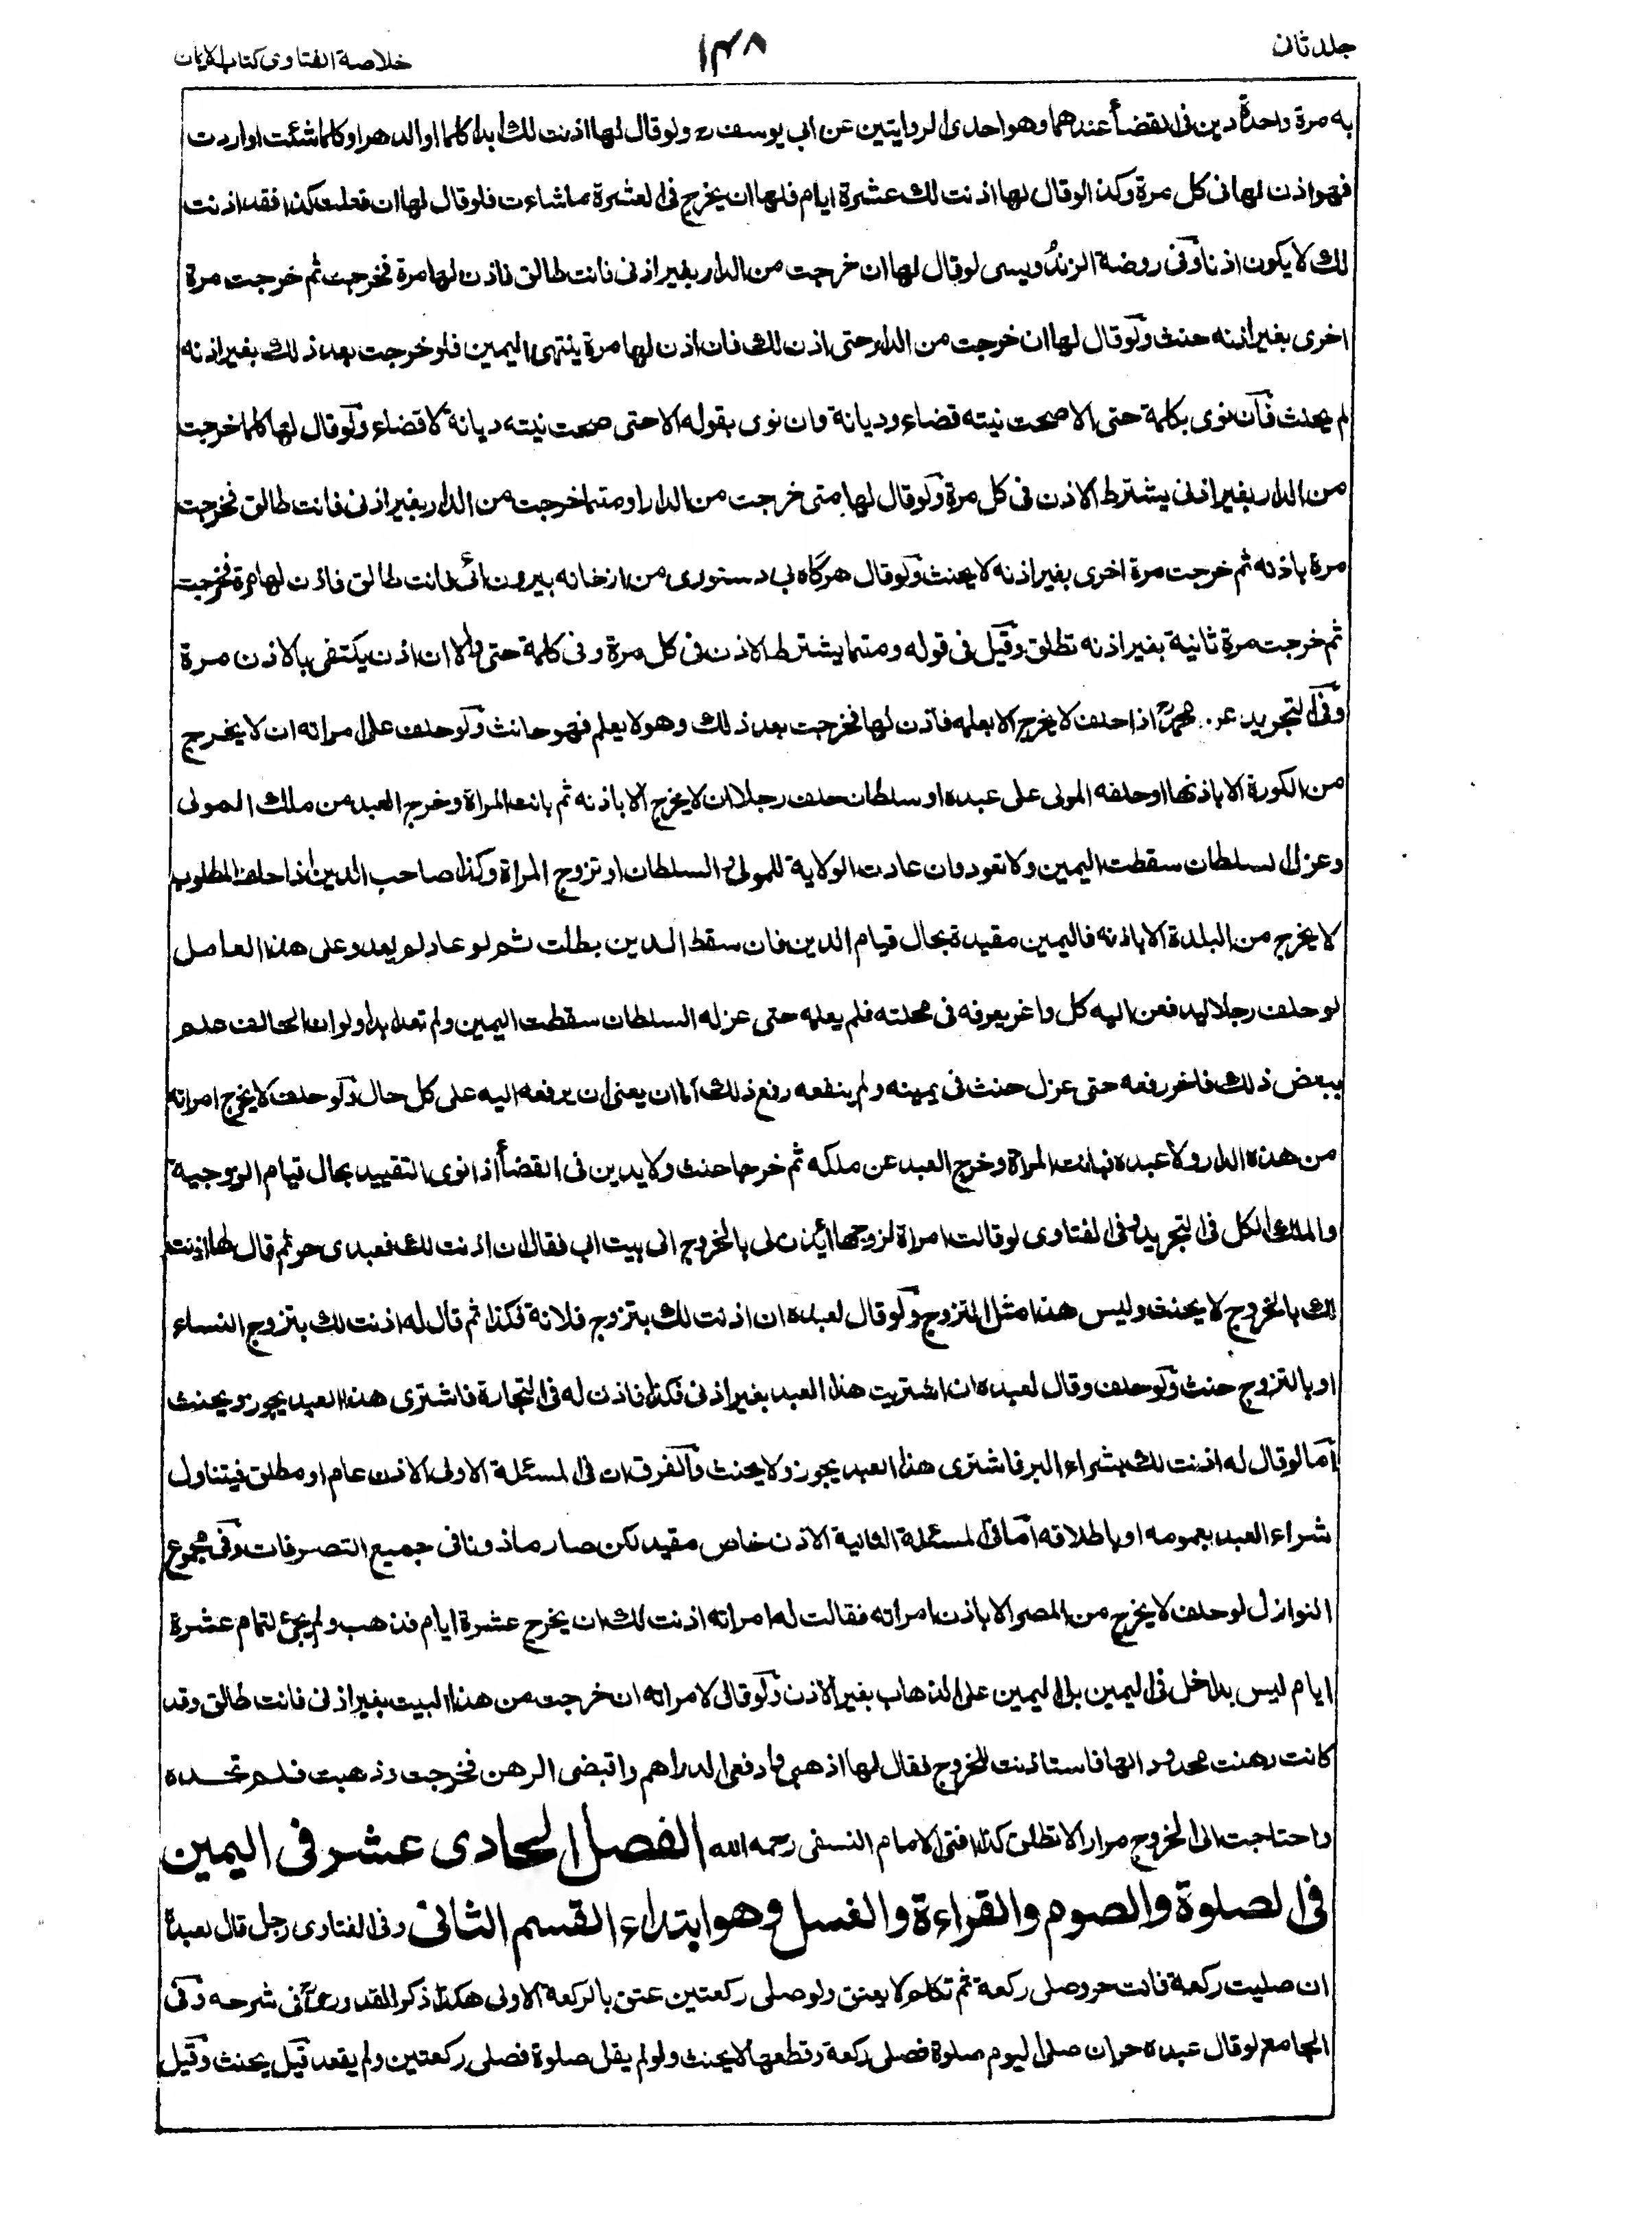 جلد ثانى
١٣٨
خلاصة الفتاوى كتاب الايمان
به مرة واحدة دين فى القضأ عندهما وهو احدى الروايتين عن ابى يوسف رح ولو قال لها اذنت لك ابدا كلما او الدهر او كلما شئت او اردت
فهو اذن لها فى كل مرة وكذا لو قال لها اذنت لك عشرة ايام فلها ان يخرج فى العشرة ما شاءت فلو قال لها ان فعلت كذا فقد اذنت
لك لا يكون اذنا وفى روضة الزندويسى لو قال لها ان خرجت من الدار بغير اذنى فانت طالق فاذن لها مرة فخرجت ثم خرجت مرة
اخرى بغير اذنه حنث ولو قال لها ان خرجت من الدار حتى اذن لك فان اذن لها مرة ينتهى اليمين فلو خرجت بعد ذلك بغير اذنه
لم يحنث فان نوى بكلمة حتى الا صحت نيته قضاء وديانة وان نوى بقوله الا حتى صحت نيته ديانة لا قضاء ولو قال لها كلما خرجت
من الدار بغير اذنى يشترط الاذن فى كل مرة ولو قال لها متى خرجت من الدار او متما خرجت من الدار بغير اذنى فانت طالق فخرجت
مرة باذنه ثم خرجت مرة اخرى بغير اذنه لا يحنث ولو قال هرگاه بى دستورى من ازخانه بيرون ائى فانت طالق فاذن لها مرة فخرجت
ثم خرجت مرة ثانية بغير اذنه تطلق وقيل فى قوله ومتما يشترط الاذن فى كل مرة وفى كلمة حتى والا ان اذن يكتفى بالاذن مرة
وفى التجريد عن محمد رح اذا حلف لا يخرج الا بعلمه فأذن لها فخرجت بعد ذلك وهو لا يعلم فهو حانث ولو حلف على امراته ان لا يخرج
من الكورة الا باذنها او حلفه المولى على عبده او سلطان حلف رجلا ان لا يخرج الا باذنه ثم بانت المراة وخرج العبد من ملك المولى
وعزل السلطان سقطت اليمين ولا تعود وان عادت الولاية للمولى والسلطان او تزوج المراة وكذا صاحب الدين اذا حلف المطلوب
لا يخرج من البلدة الا باذنه فاليمين مقيدة بحال قيام الدين فان سقط الدين بطلت ثم لو عاد لم يعد وعلى هذا العامل
لو حلف رجلا ليدفعن اليه كل داعر يعرفه فى محلته فلم يعلمه حتى عزله السلطان سقطت اليمين ولم تعد ابدا ولو ان الحالف علم
ببعض ذلك فاخر رفعه حتى عزل حنث فى يمينه ولم ينفعه رفع ذلك الا ان يعنى ان يرفعه اليه على كل حال ولو حلف لا يخرج امراته
من هذه الدار ولا عبده فبانت المراة وخرج العبد عن ملكه ثم خرجا حنث ولا يدين فى القضأ اذا نوى التقييد بحال قيام الزوجية
والملك الكل فى التجريد وفى الفتاوى لو قالت امراة لزوجها أئذن لى بالخروج الى بيت اب فقال ان اذنت لك فعبدى حر ثم قال لها اذنت
لك بالخروج لا يحنث وليس هذا مثل التزوج ولو قال لعبده ان اذنت لك بتزوج فلانة فكذا ثم قال له اذنت لك بتزوج النساء
او بالتزوج حنث ولو حلف وقال لعبده ان اشتريت هذا العبد بغير اذنى فكذا فاذن له فى التجارة فاشترى هذا العبد يجوز ويحنث
أما لو قال له اذنت لك بشراء البر فاشترى هذا العبد يجوز ولا يحنث والفرق ان فى المسئلة الاولى الاذن عام او مطلق فيتناول
شراء العبد بعمومه او باطلاقه أما فى المسئلة الثانية الاذن خاص مقيد لكن صار ماذونا فى جميع التصرفات وفى مجموع
النوازل لو حلف لا يخرج من المصر الا باذن امراته فقالت له امراته اذنت لك ان يخرج عشرة ايام فذهب ولم يجئ لتمام عشرة
ايام ليس بداخل فى اليمين بل اليمين على الذهاب بغير الاذن ولو قال لامراته ان خرجت من هذا البيت بغير اذنى فانت طالق وقد
كانت رهنت الها فاستاذنت للخروج فقال لها اذهبى وادفعى الدراهم واقبضى الرهن فخرجت وذهبت فلم تجده
واحتاجت الى الخروج مرارا لا تطلق كذا افتى الامام النسفى رحمه الله الفصل الحادى عشر فى اليمين
فى الصلوة والصوم والقراءة والغسل وهو ابتداء القسم الثانى وفى الفتاوى رجل قال لعبدة
ان صليت ركعة فانت حر وصلى ركعة ثم تكلم لا يعتق ولو صلى ركعتين عتق بالركعة الاولى هكذا ذكر القدورى فى شرحه وفى
الجامع لو قال عبده حر ان صلى اليوم صلوة فصلى ركعة وقطعها لا يحنث ولو لم يقل صلوة فصلى ركعتين ولم يقعد قيل يحنث وقيل